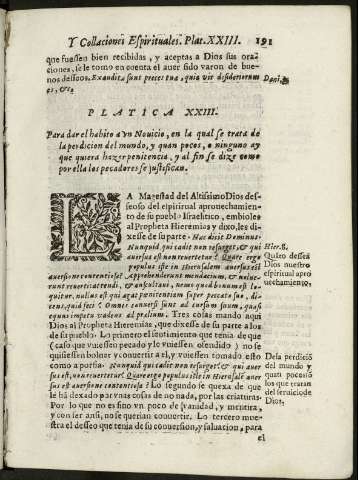 Y Collaciones Espirituales. Plat. XXIII. 191
que fuessen bien recibidas, y aceptas a Dios sus ora-
ciones, se le tomo en cuenta el auer sido varon de bue-
nos desseos. Exaudita sunt preces tua, quia vir desideriorum
es, &c.
Dani.
PLATICA XXIII.
Para dar el habito a vn Nouicio, en la qual se trata de
la perdicion del mundo, y quan pocos, o ninguno ay
que quiera hazer penitencia, y al fin se dize como
por ella los pecadores se justifican.
LA Magestad del Altissimo Dios des-
seoso del espiritual aprouechamien-
to de su pueblo Israelitico, embiole
al Propheta Hieremias y dixo, les di-
xesse de su parte. Hac dicit Dominus.
Nunquid qui cadit non resurget, & qui
auersus est non reuertetur? Quare ergo
populus iste in Hierusalem auersus est
auersione contentiosa? Apprehenderunt mendacium, & nolue-
runt reuerti: attendi, & auscultaui, nemo quod bonum est lo-
quitur, nullus est qui agat penitentiam super peccato suo, di-
cens, quid feci? Omnes conuersi sunt ad cursum suum, quasi
equus impetu vadens ad prelium. Tres cosas mando aqui
Dios al Propheta Hieremias, que dixesse de su parte a los
de su pueblo. Lo primero el sentimiento que tenia de que
(caso que vuiessen pecado y le vuiessen ofendido) no se
quisiessen boluer y conuertir a el, y vuiessen tomado esto
como a porfia. Nunquid qui cadit non resurget? & qui auer-
sus est, non reuertetur? Quare ergo populus iste in Hierusalẽ auer-
sus est auersione contentiosa? Lo segundo se quexa de que
le hã dexado par vnas cosas de no nada, por las criaturas.
Por lo que no es sino vn poco de vanidad, y mentira,
y con ser ansi, no se querian conuertir. Lo tercero mues-
tra el desseo que tenia de su conuersion, y saluacion, para
el
Hier. 8.
Quãto dessea
Dios nuestro
espiritual apro
uechamiento.
De la perdiciõ
del mundo y
quan pocos sõ
los que tratan
del seruicio de
Dios.